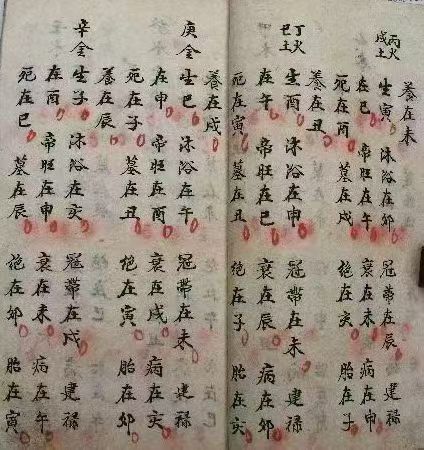 養在未
丙火戊土 生寅 沐浴在卯 冠帶在辰 建祿
在巳 帝旺在午 衰在未 病在申
死在酉 墓在戌 絶在亥 胎在子
養在丑
丁火己土 生酉 沐浴在申 冠帶在未 建祿
在午 帝旺在巳 衰在辰 病在卯
死在寅 墓在丑 絶在子 胎在亥
養在戌
庚金 生巳 沐浴在午 冠帶在未 建祿
在申 帝旺在酉 衰在戌 病在亥
死在子 墓在丑 絶在寅 胎在卯
養在辰
辛金 生子 沐浴在亥 冠帶在戌 建祿
在酉 帝旺在申 衰在未 病在午
死在巳 墓在辰 絶在卯 胎在寅